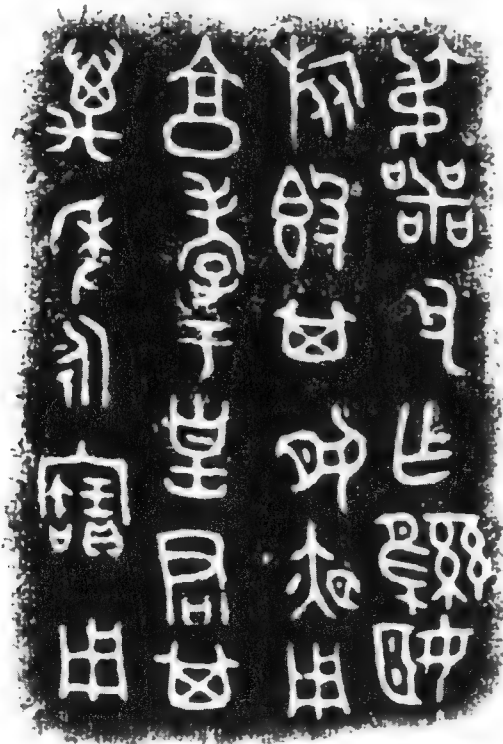 弔噩父乍鷞姬
旅𣪘其夙夜用
亯孝于皇君其
萬年永寶用